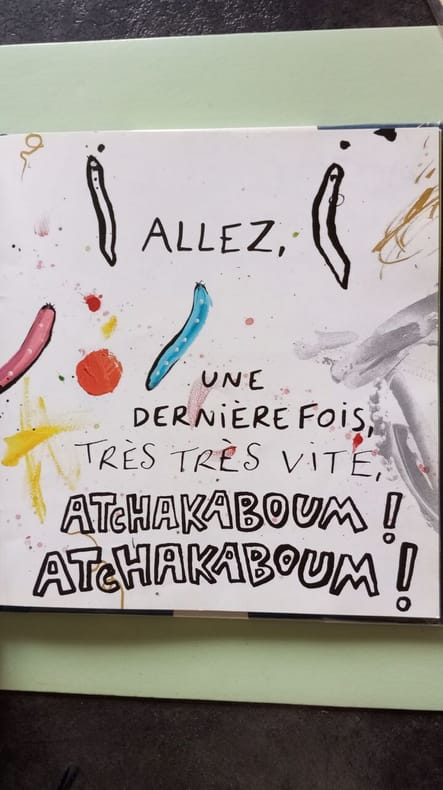 ALLEZ,
UNE
DERNIÈRE FOIS,
TRÈS TRÈS VITE,
ATcHAKABOUM !
ATcHAKABOUM !